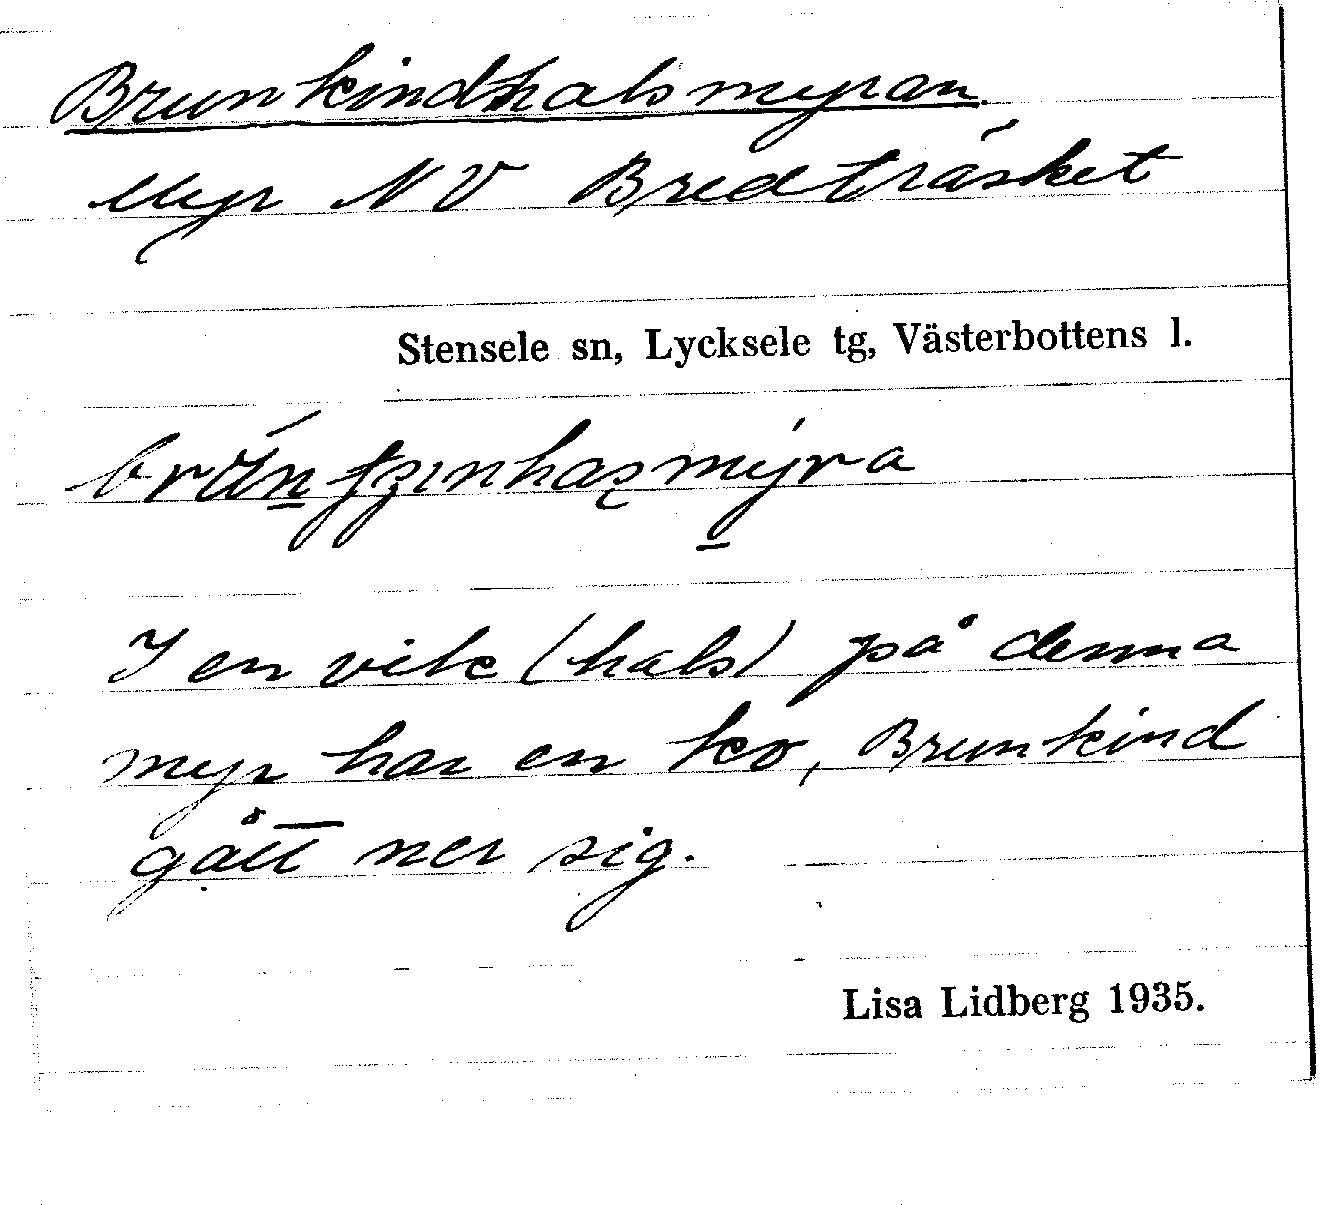 Brunkindhalsmyran.
Myr NV Bredträsket
Stensele sn, Lycksele tg, Västerbottens l.
I en vik (hals) på denna
myr har en ko, Brunkind
gått ner sig.
Lisa Lidberg 1935.